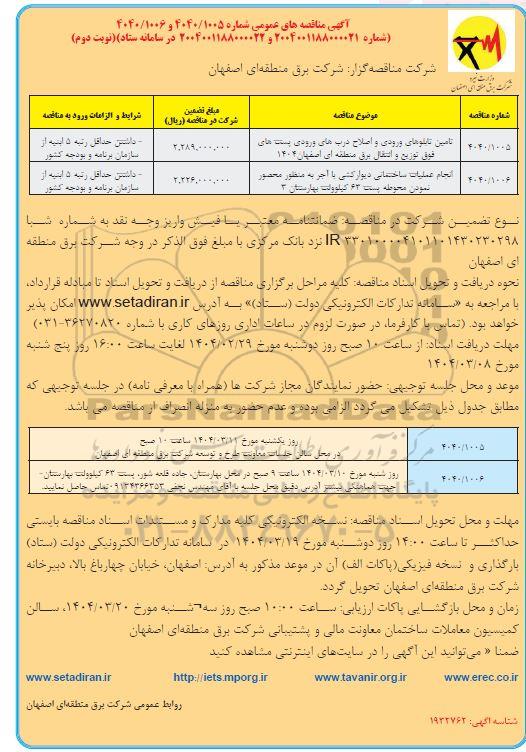 آگهی مناقصه های عمومی شماره ۴۰۴۰/۱۰۰۵ و ۴۰۴۰/۱۰۰۶
(شماره ۲۰۰۴۰۰۱۱۸۸۰۰۰۰۲۱ و ۲۰۰۴۰۰۱۱۸۸۰۰۰۰۲۲ در سامانه ستاد)(نوبت دوم)
وزارت نیرو
شرکت برق منطقه ای اصفهان
شرکت مناقصه‌گزار: شرکت برق منطقه‌ای اصفهان
شماره مناقصه
موضوع مناقصه
مبلغ تضمین
شرکت در مناقصه (ریال)
شرایط و الزامات ورود به مناقصه
۴۰۴۰/۱۰۰۵
تامین تابلوهای ورودی و اصلاح درب های ورودی پست های
فوق توزیع و انتقال برق منطقه ای اصفهان۱۴۰۴
۲,۲۸۹,۰۰۰,۰۰۰
- داشتن حداقل رتبه ۵ ابنیه از
سازمان برنامه و بودجه کشور
۴۰۴۰/۱۰۰۶
انجام عملیات ساختمانی دیوارکشی با آجر به منظور محصور
نمودن محوطه پست ۶۳ کیلوولت بهارستان ۳
۲,۲۲۶,۰۰۰,۰۰۰
- داشتن حداقل رتبه ۵ ابنیه از
سازمان برنامه و بودجه کشور
نوع تضمین شرکت در مناقصه: ضمانتنامه معتبر یا فیش واریز وجه نقد به شماره شبا
IR ۳۳۰۱۰۰۰۰۴۱۰۱۱۰۱۴۳۰۲۳۰۲۹۸ نزد بانک مرکزی با مبلغ فوق الذکر در وجه شرکت برق منطقه
ای اصفهان
نحوه دریافت و تحویل اسناد مناقصه: کلیه مراحل برگزاری مناقصه از دریافت و تحویل اسناد تا مبادله قرارداد،
با مراجعه به «سامانه تدارکات الکترونیکی دولت (ستاد)» به آدرس www.setadiran.ir امکان پذیر
خواهد بود. (تماس با کارفرما، در صورت لزوم در ساعات اداری روزهای کاری با شماره ۳۶۲۷۰۸۲۰-۰۳۱)
مهلت دریافت اسناد: از ساعت ۱۰ صبح روز دوشنبه مورخ ۱۴۰۴/۰۲/۲۹ لغایت ساعت ۱۶:۰۰ روز پنج شنبه
مورخ ۱۴۰۴/۰۳/۰۸
موعد و محل جلسه توجیهی: حضور نمایندگان مجاز شرکت ها (همراه با معرفی نامه) در جلسه توجیهی که
مطابق جدول ذیل تشکیل می گردد الزامی بوده و عدم حضور به منزله انصراف از مناقصه می باشد.
۴۰۴۰/۱۰۰۵
روز یکشنبه مورخ ۱۴۰۴/۰۳/۱۱ ساعت ۱۰ صبح
در محل سالن جلسات معاونت طرح و توسعه شرکت برق منطقه ای اصفهان
۴۰۴۰/۱۰۰۶
روز شنبه مورخ ۱۴۰۴/۰۳/۱۰ ساعت ۹ صبح در محل بهارستان، جاده قلعه شور، پست ۶۳ کیلوولت بهارستان-
جهت هماهنگی بیشتر آدرس دقیق محل جلسه با آقای مهندس نجفی ۰۹۱۳۴۳۶۶۳۵۳ تماس حاصل نمایید.
مهلت و محل تحویل اسناد مناقصه: نسخه الکترونیکی کلیه مدارک و مستندات اسناد مناقصه بایستی
حداکثر تا ساعت ۱۴:۰۰ روز دوشنبه مورخ ۱۴۰۴/۰۳/۱۹ در سامانه تدارکات الکترونیکی دولت (ستاد)
بارگذاری و نسخه فیزیکی(پاکات الف) آن در موعد مذکور به آدرس: اصفهان، خیابان چهارباغ بالا، دبیرخانه
شرکت برق منطقه‌ای اصفهان تحویل گردد.
زمان و محل بازگشایی پاکات ارزیابی: ساعت ۱۰:۰۰ صبح روز سه¬شنبه مورخ ۱۴۰۴/۰۳/۲۰، سالن
کمیسیون معاملات ساختمان معاونت مالی و پشتیبانی شرکت برق منطقه‌ای اصفهان
ضمنا « می‌توانید این آگهی را در سایت‌های اینترنتی مشاهده کنید
www.setadiran.ir http://iets.mporg.ir www.tavanir.org.ir www.erec.co.ir
روابط عمومی شرکت برق منطقه‌ای اصفهان
شناسه آگهی: ۱۹۳۲۷۶۲
ParsNamadData